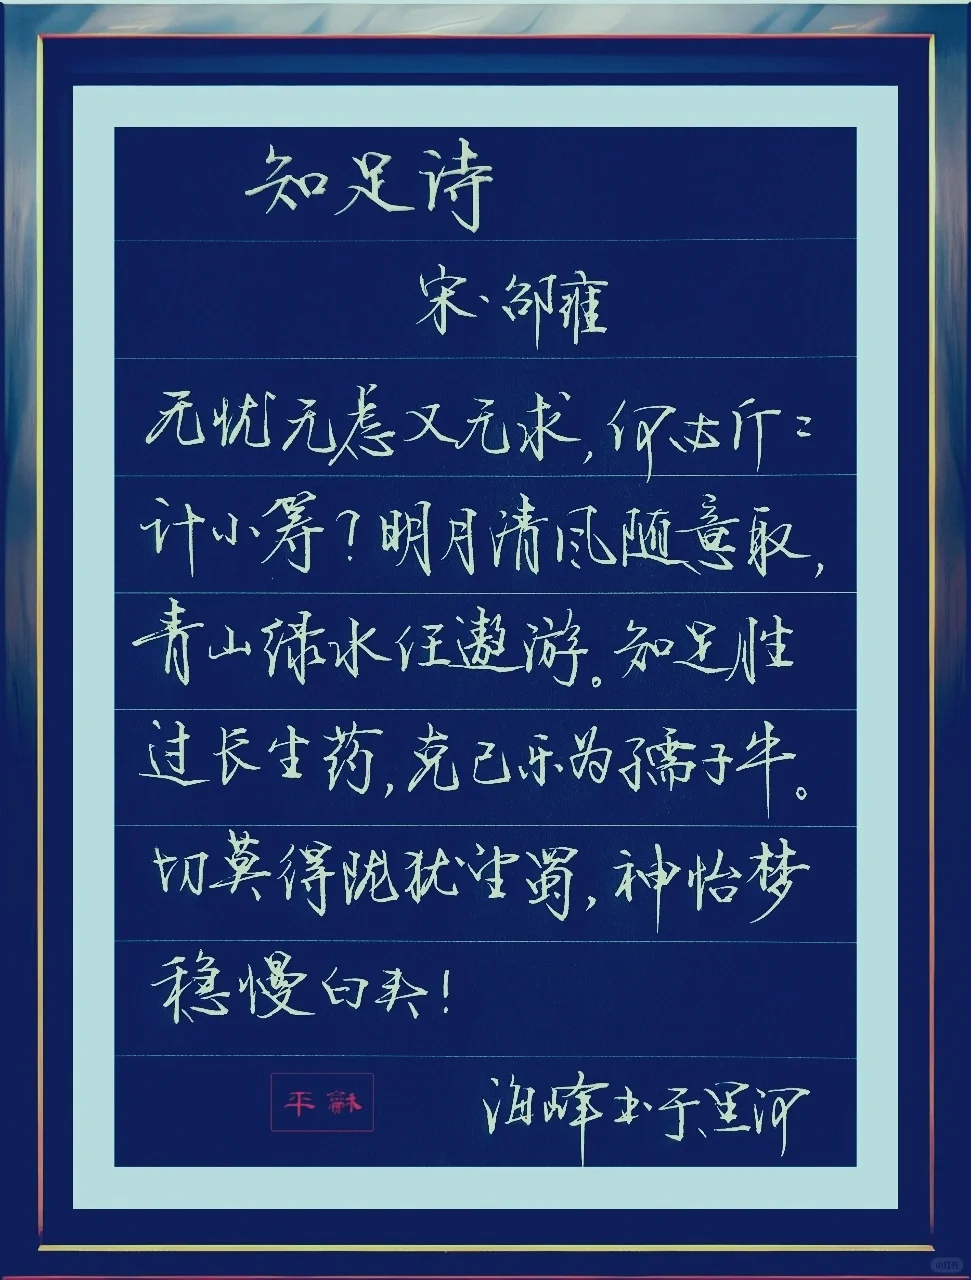 知足诗
宋·邵雍
无忧无虑又无求,何必斤々
计小筹?明月清风随意取,
青山绿水任遨游。知足胜
过长生药,克己乐为孺子牛。
切莫得陇犹望蜀,神怡梦
稳慢白头!
平龢
海峰书于黑河
小红书